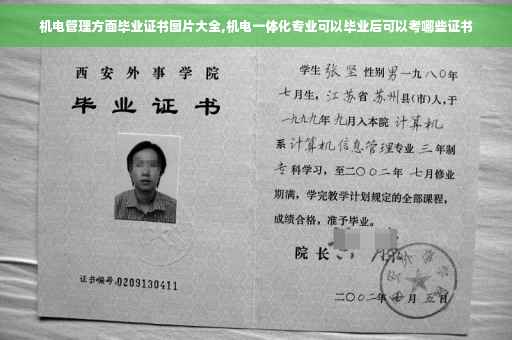 机电管理方面毕业证书图片大全,机电一体化专业可以毕业后可以考哪些证书
西安外事学院
毕业证书
证书编号:0209130411
学生 张坚 性别男 一九八〇年
七月生,江苏省苏州县(市)人,于
一九九九年九月入本院 计算机
系 计算机信息管理专业 三年制
专科学习,至二〇〇二年 七月修业
期满,学完教学计划规定的全部课程,
成绩合格,准予毕业。
院长
二〇〇二年 月五日